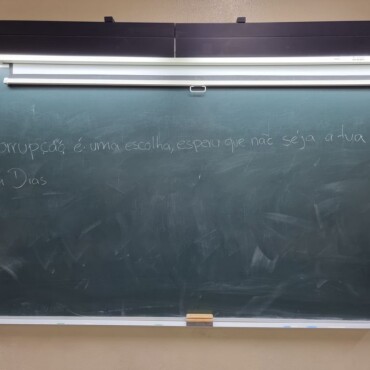 orrupção é uma escolha, espero que não seja a tua
a Dias